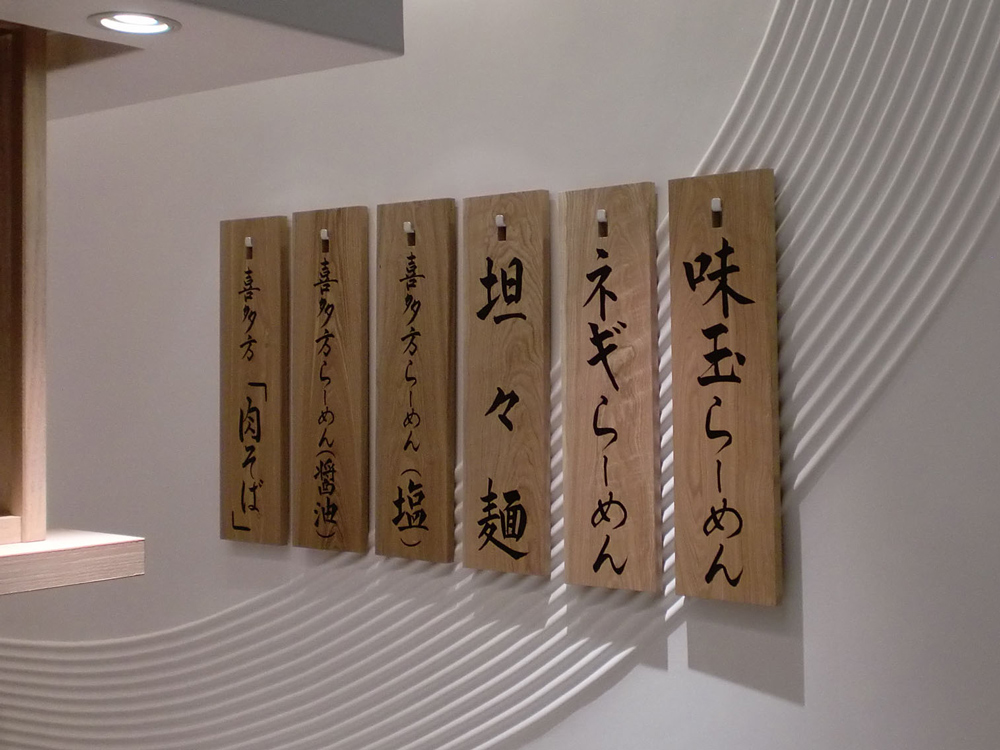 味玉らーめん
ネギらーめん
坦々麺
喜多方らーめん（塩）
喜多方らーめん（醤油）
喜多方「肉そば」